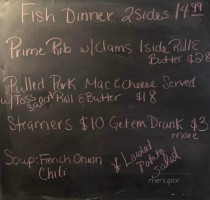 Fish Dinner 2 Sides 14.99
Prime Rib w/Clams 1 side Roll &
Butter $28
Pulled Pork Mac & Cheese Served
w/Toss Salad Roll & Butter $18
Steamers $10 Get em Drunk $3
more
Soup: French Onion
Chili
* Loaded
Potato
Salad
menupix